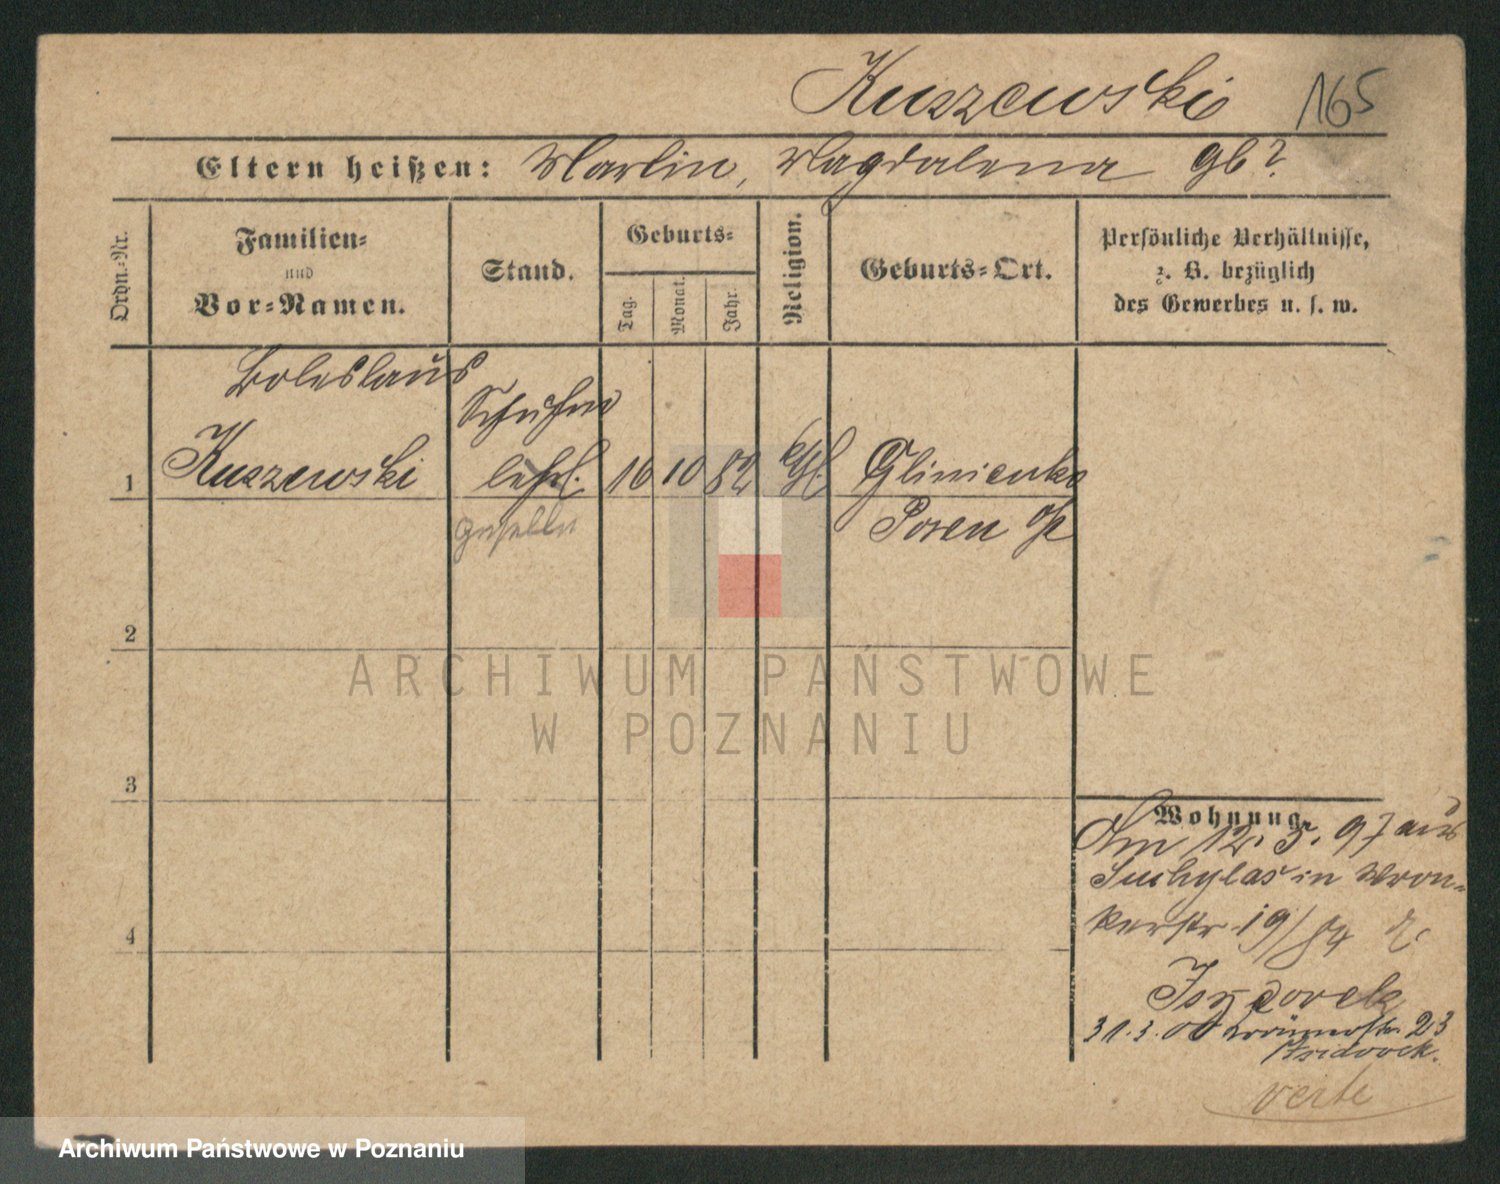 Kuszewski 165
Eltern heißen: Martin, Magdalena gb?
Ordn.-Nr.
Familien-
und
Vor-Namen.
Stand.
Geburts-
Tag.
Monat.
Jahr.
Religion.
Geburts-Ort.
Persönliche Verhältnisse,
z. B. bezüglich
des Gewerbes u. s. w.
Boleslaus
Schuhm
1 Kuszewski lehrl. 16 10 82 Glinienko
geselle Posen
2
3
4
ARCHIWUM PAŃSTWOWE
W POZNANIU
Wohnung.
Am 12. 5. 97 aus
Suchylas in Wron-
kerstr 19/84
Isydorek
31.3.00 Krämerstr. 23
Isidorek.
verte
Archiwum Państwowe w Poznaniu